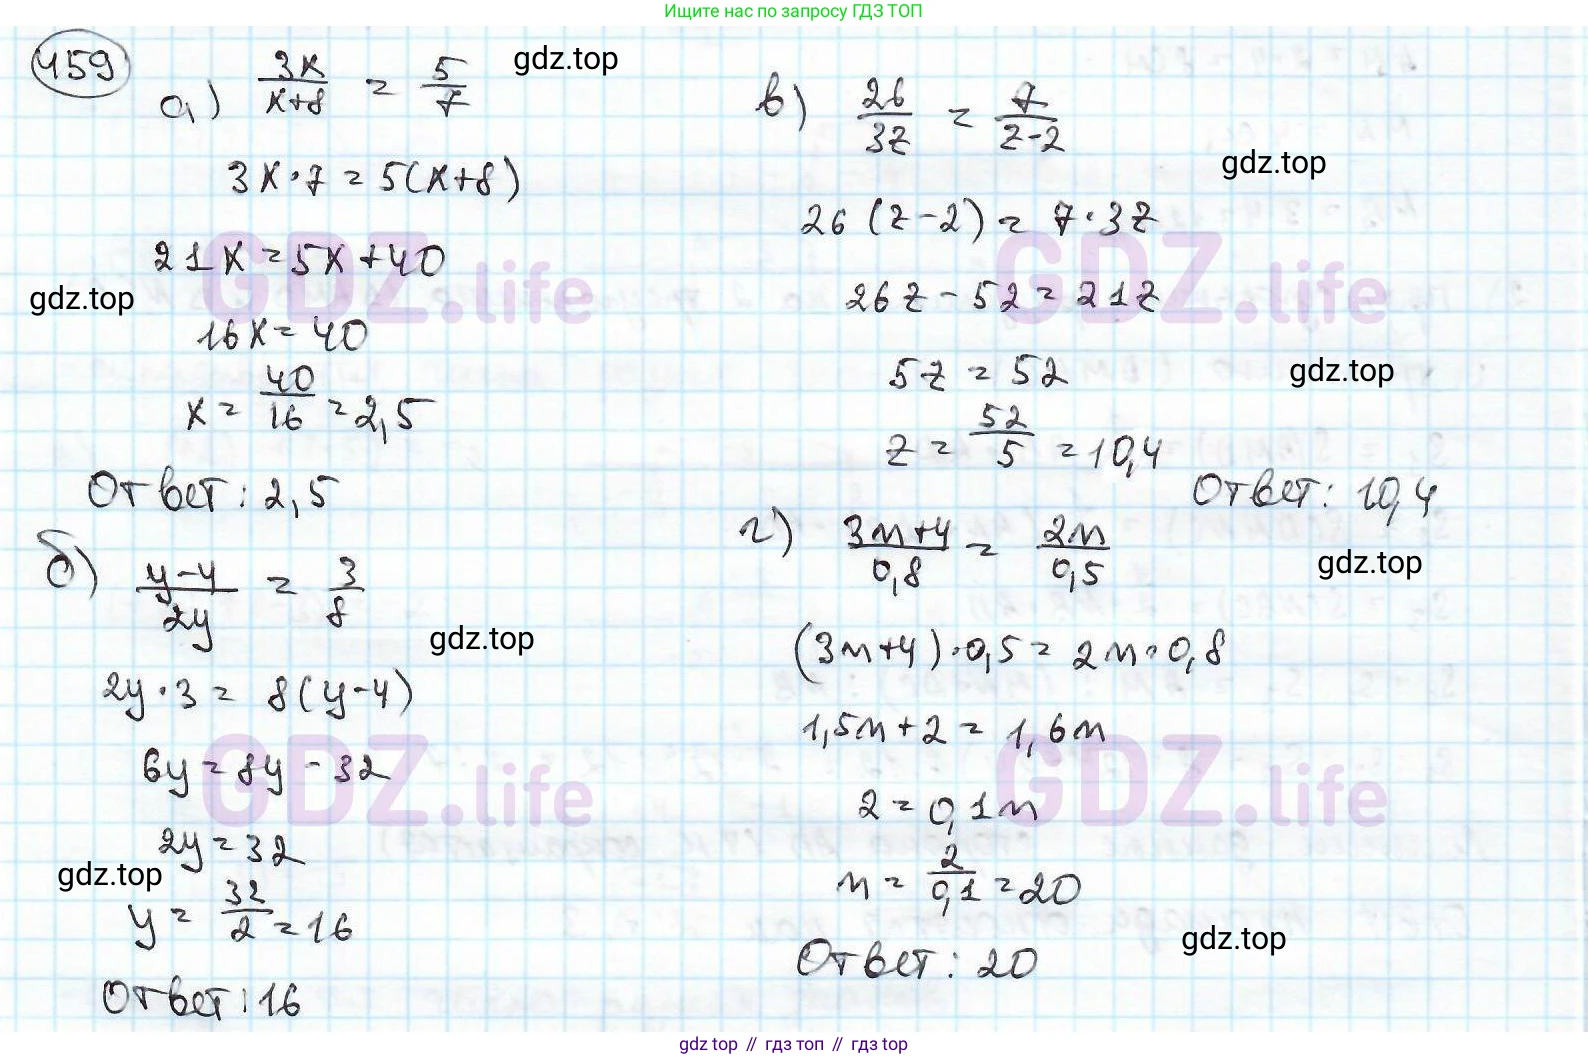 Ищите нас по запросу ГДЗ ТОП
459
а) 3x/(x+8) = 5/7
gdz.top
3x·7 = 5(x+8)
21x = 5x+40
gdz.top
16x = 40
x = 40/16 = 2,5
Ответ: 2,5
б) (y-4)/2y = 3/8
gdz.top
2y·3 = 8(y-4)
6y = 8y - 32
2y = 32
gdz.top
y = 32/2 = 16
Ответ: 16
в) 26/3z = 7/(z-2)
gdz.top
26(z-2) = 7·3z
26z - 52 = 21z
5z = 52
gdz.top
z = 52/5 = 10,4
Ответ: 10,4
г) (3м+4)/0,8 = 2м/0,5
gdz.top
(3м+4)·0,5 = 2м·0,8
1,5м+2 = 1,6м
2 = 0,1м
м = 2/0,1 = 20
gdz.top
Ответ: 20
GDZ.life
GDZ.life
GDZ.life
GDZ.life
gdz top // гдз топ // гдз top